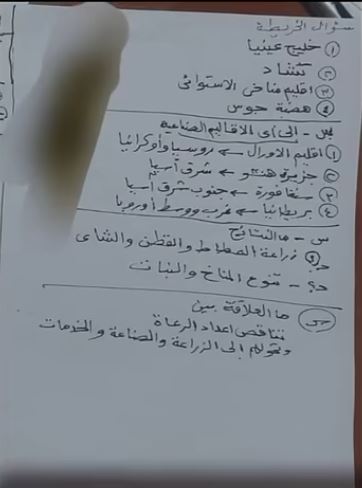 سؤال الخريطة
① خليج غينيا
② تشاد
③ اقليم مناخى الاستوائى
④ هضبة جوس
س - إلى أى الاقاليم الصناعية
① اقليم الاورال ← روسيا وأوكرانيا
② جزيرة هنشو ← شرق آسيا
③ سنغافورة ← جنوب شرق آسيا
④ بريطانيا ← غرب ووسط أوروبا
س - ما النتائج
زراعة المطاط والقطن والشاى
ج٢ - تنوع المناخ والنبات
س ما العلاقة بين
تناقص اعداد الرعاة
وتحولهم إلى الزراعة والصناعة والخدمات